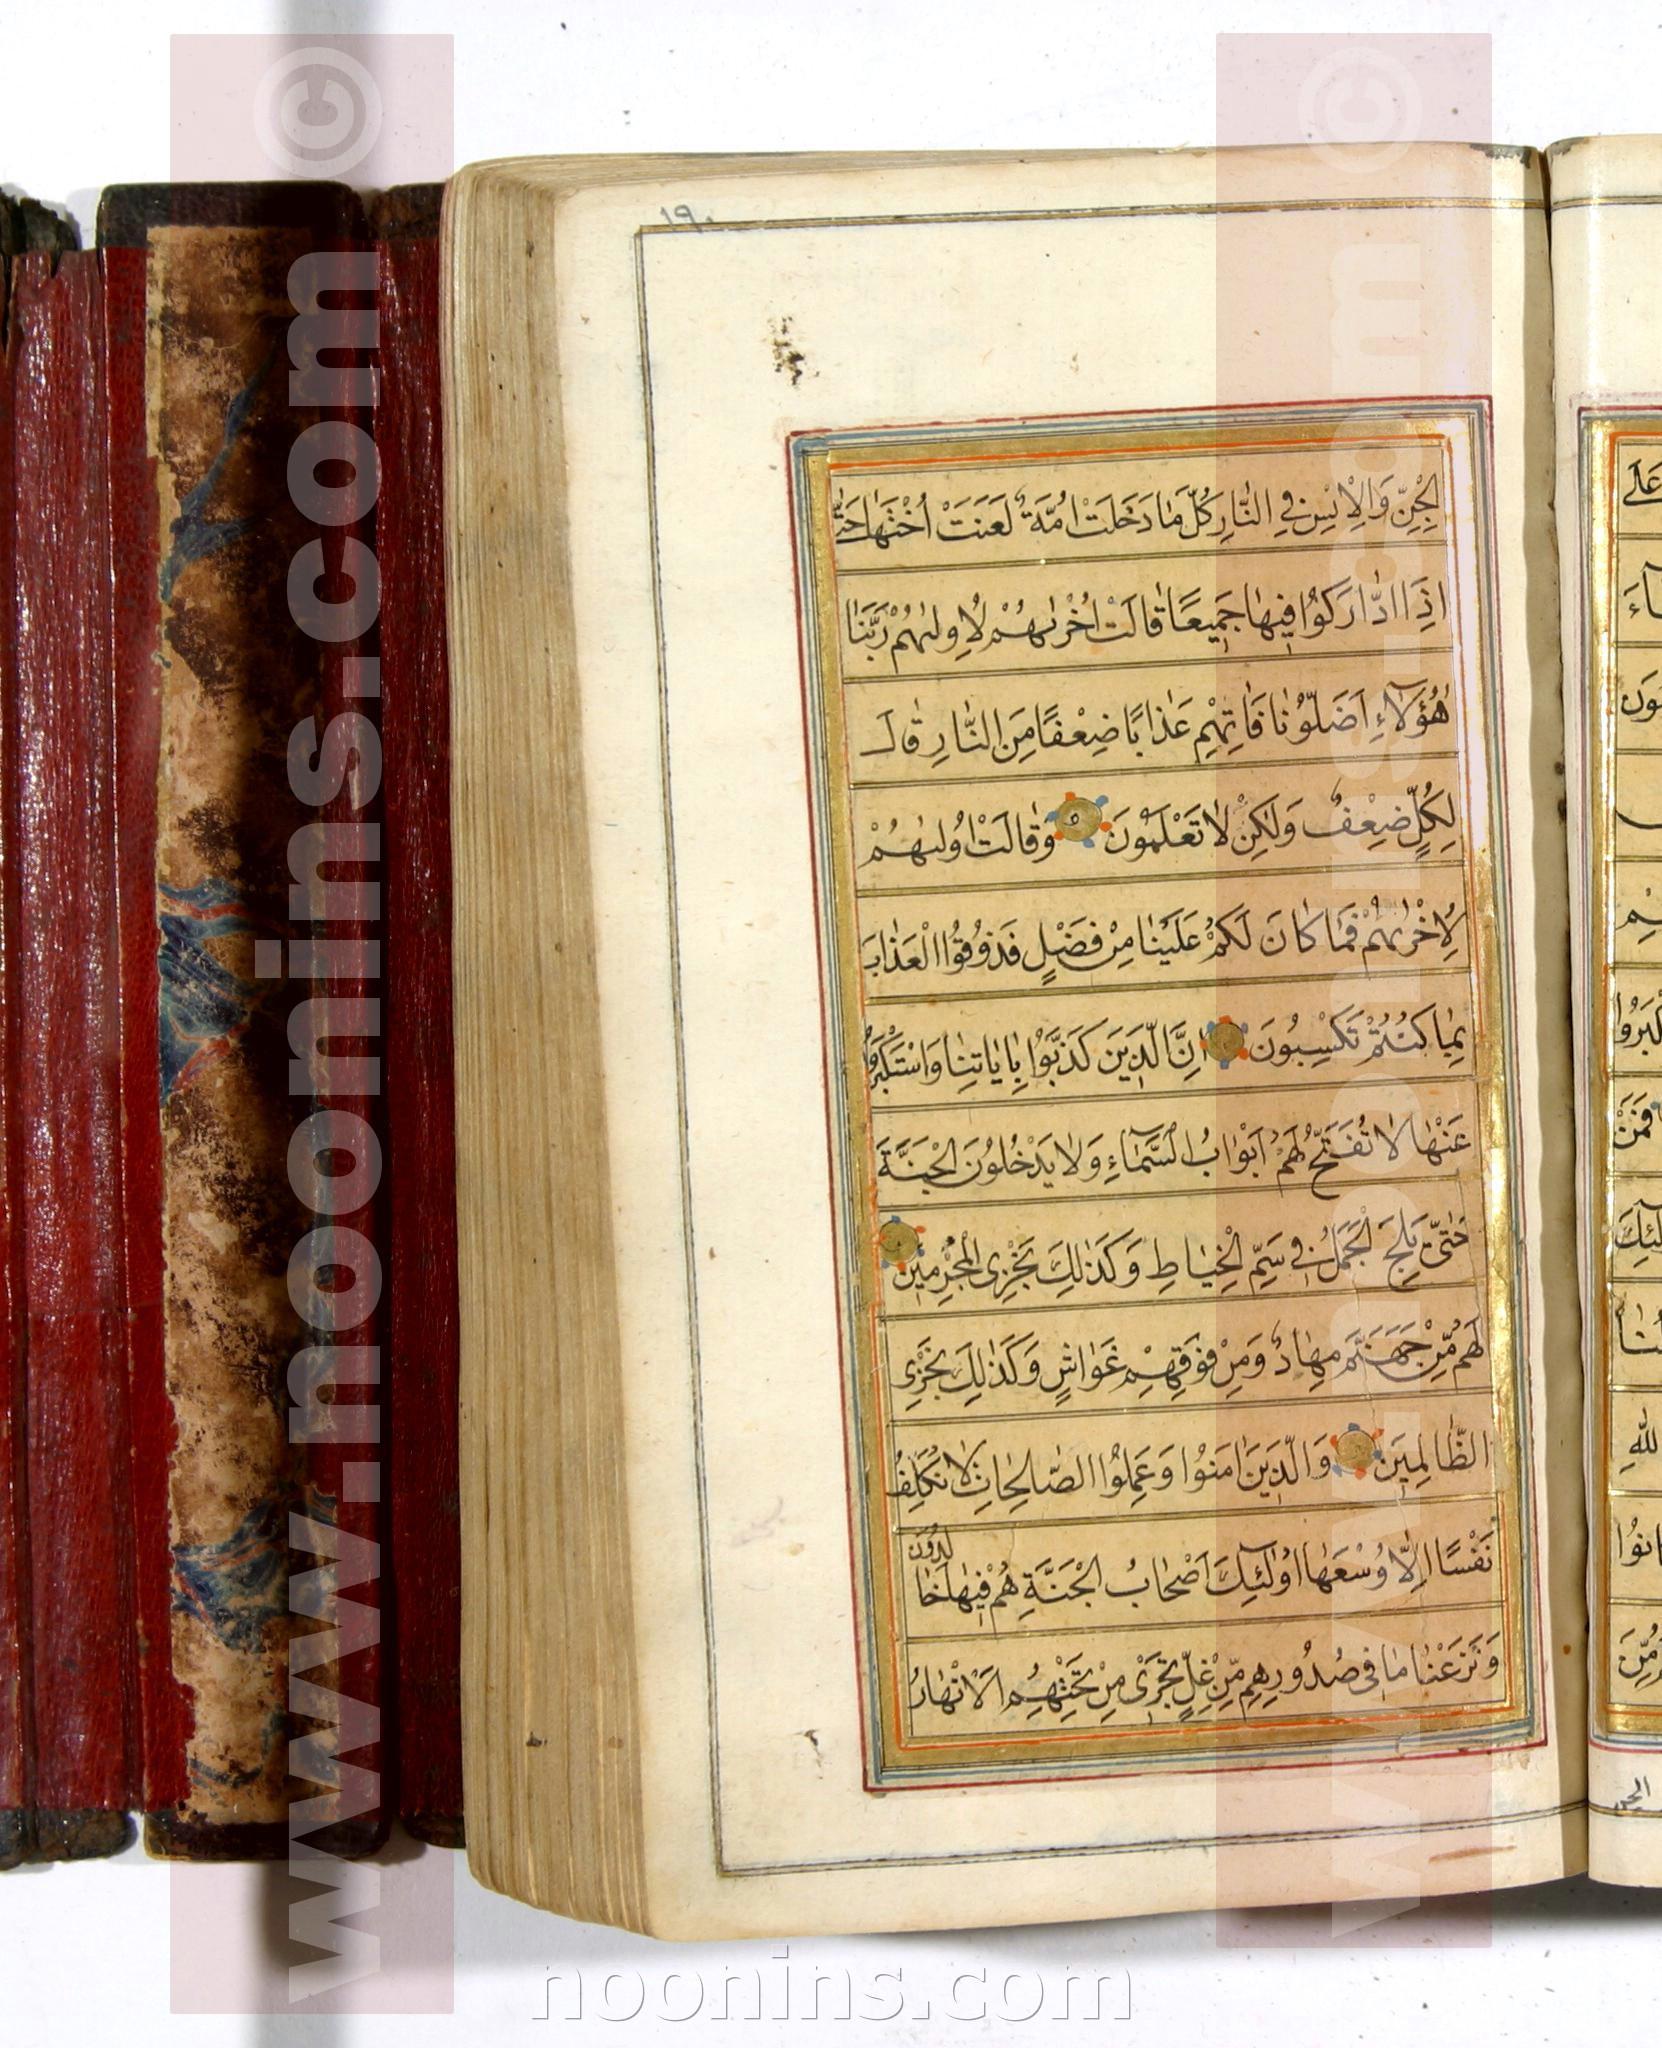 ١٩٠
الْجِنِّ وَالْاِنْسِ فِي النَّارِ كُلَّ مَا دَخَلَتْ اُمَّةٌ لَعَنَتْ اُخْتَهَا حَتّٰى
اِذَا ادَّارَكُوا فِيهَا جَمِيعًا قَالَتْ اُخْرٰيهُمْ لِاُولٰيهُمْ رَبَّنَا
هٰؤُلَآءِ اَضَلُّونَا فَاٰتِهِمْ عَذَابًا ضِعْفًا مِنَ النَّارِ قَالَ
لِكُلٍّ ضِعْفٌ وَلٰكِنْ لَا تَعْلَمُونَ وَقَالَتْ اُولٰيهُمْ
لِاُخْرٰيهُمْ فَمَا كَانَ لَكُمْ عَلَيْنَا مِنْ فَضْلٍ فَذُوقُوا الْعَذَابَ
بِمَا كُنْتُمْ تَكْسِبُونَ اِنَّ الَّذِينَ كَذَّبُوا بِاٰيَاتِنَا وَاسْتَكْبَرُوا
عَنْهَا لَا تُفَتَّحُ لَهُمْ اَبْوَابُ السَّمَآءِ وَلَا يَدْخُلُونَ الْجَنَّةَ
حَتّٰى يَلِجَ الْجَمَلُ فِي سَمِّ الْخِيَاطِ وَكَذٰلِكَ نَجْزِي الْمُجْرِمِينَ
لَهُمْ مِنْ جَهَنَّمَ مِهَادٌ وَمِنْ فَوْقِهِمْ غَوَاشٍ وَكَذٰلِكَ نَجْزِي
الظَّالِمِينَ وَالَّذِينَ اٰمَنُوا وَعَمِلُوا الصَّالِحَاتِ لَا نُكَلِّفُ
نَفْسًا اِلَّا وُسْعَهَا اُولٰٓئِكَ اَصْحَابُ الْجَنَّةِ هُمْ فِيهَا خَالِدُونَ
وَنَزَعْنَا مَا فِي صُدُورِهِمْ مِنْ غِلٍّ تَجْرِي مِنْ تَحْتِهِمُ الْاَنْهَارُ
www.noonins.com ©
www.noonins.com ©
noonins.com